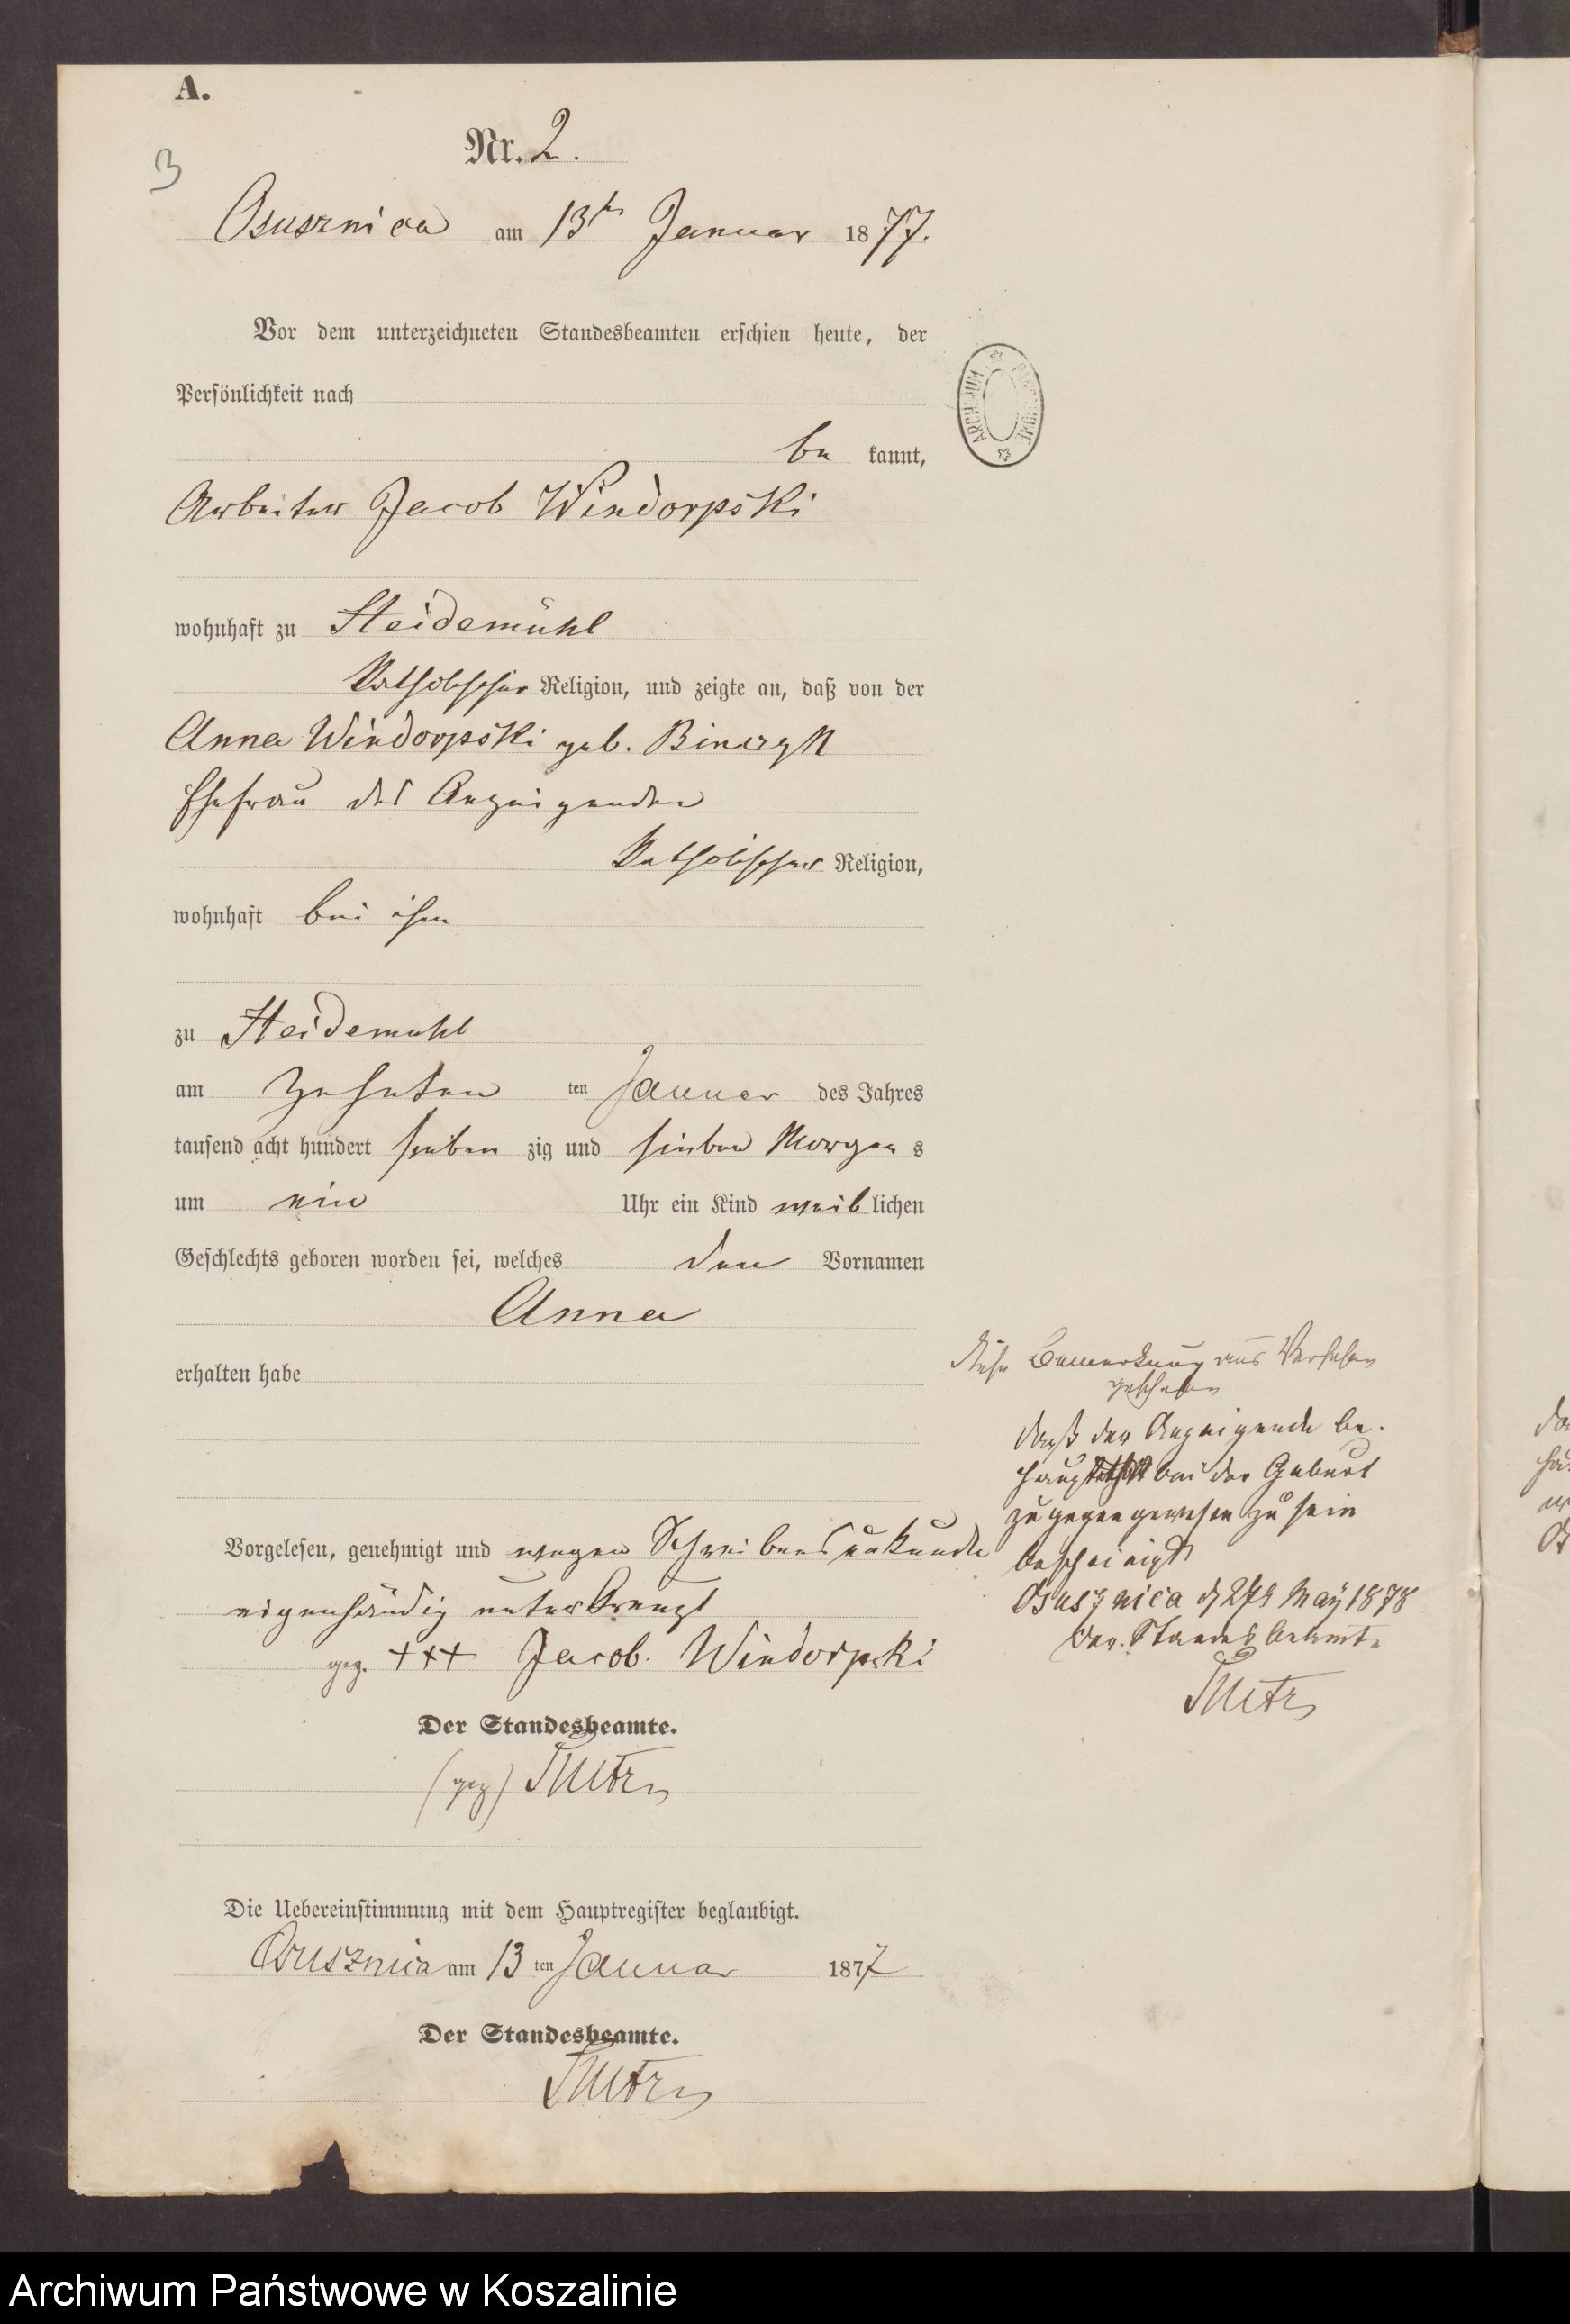 A.
3
Nr. 2.
Osusznica am 13t Januar 1877.
Vor dem unterzeichneten Standesbeamten erschien heute, der
Persönlichkeit nach
be kannt,
Arbeiter Jacob Windorpski
wohnhaft zu Heidemühl
Katholischer Religion, und zeigte an, daß von der
Anna Windorpski geb. Binczyk
Ehefrau des Anzeigenden
Katholischer Religion,
wohnhaft bei ihm
zu Heidemühl
am Zehnten ten Januar des Jahres
tausend acht hundert sieben zig und sieben Morgen s
um ein Uhr ein Kind weib lichen
Geschlechts geboren worden sei, welches den Vornamen
Anna
erhalten habe
Vorgelesen, genehmigt und wegen Schreibensunkunde
eigenhändig unterkreuzt
gez. +++ Jacob. Windorpski
Der Standesbeamte.
(gez)
Die Uebereinstimmung mit dem Hauptregister beglaubigt.
Osusznica am 13 ten Januar 1877
Der Standesbeamte.
Bemerkung aus Versehen
geschehen
daß der Anzeigende be-
bei der Geburt
zugegen gewesen zu sein
bescheinigt
Osusznica d 27t May 1878
Der Standesbeamte
ARCHIWUM PAŃSTWOWE
Archiwum Państwowe w Koszalinie